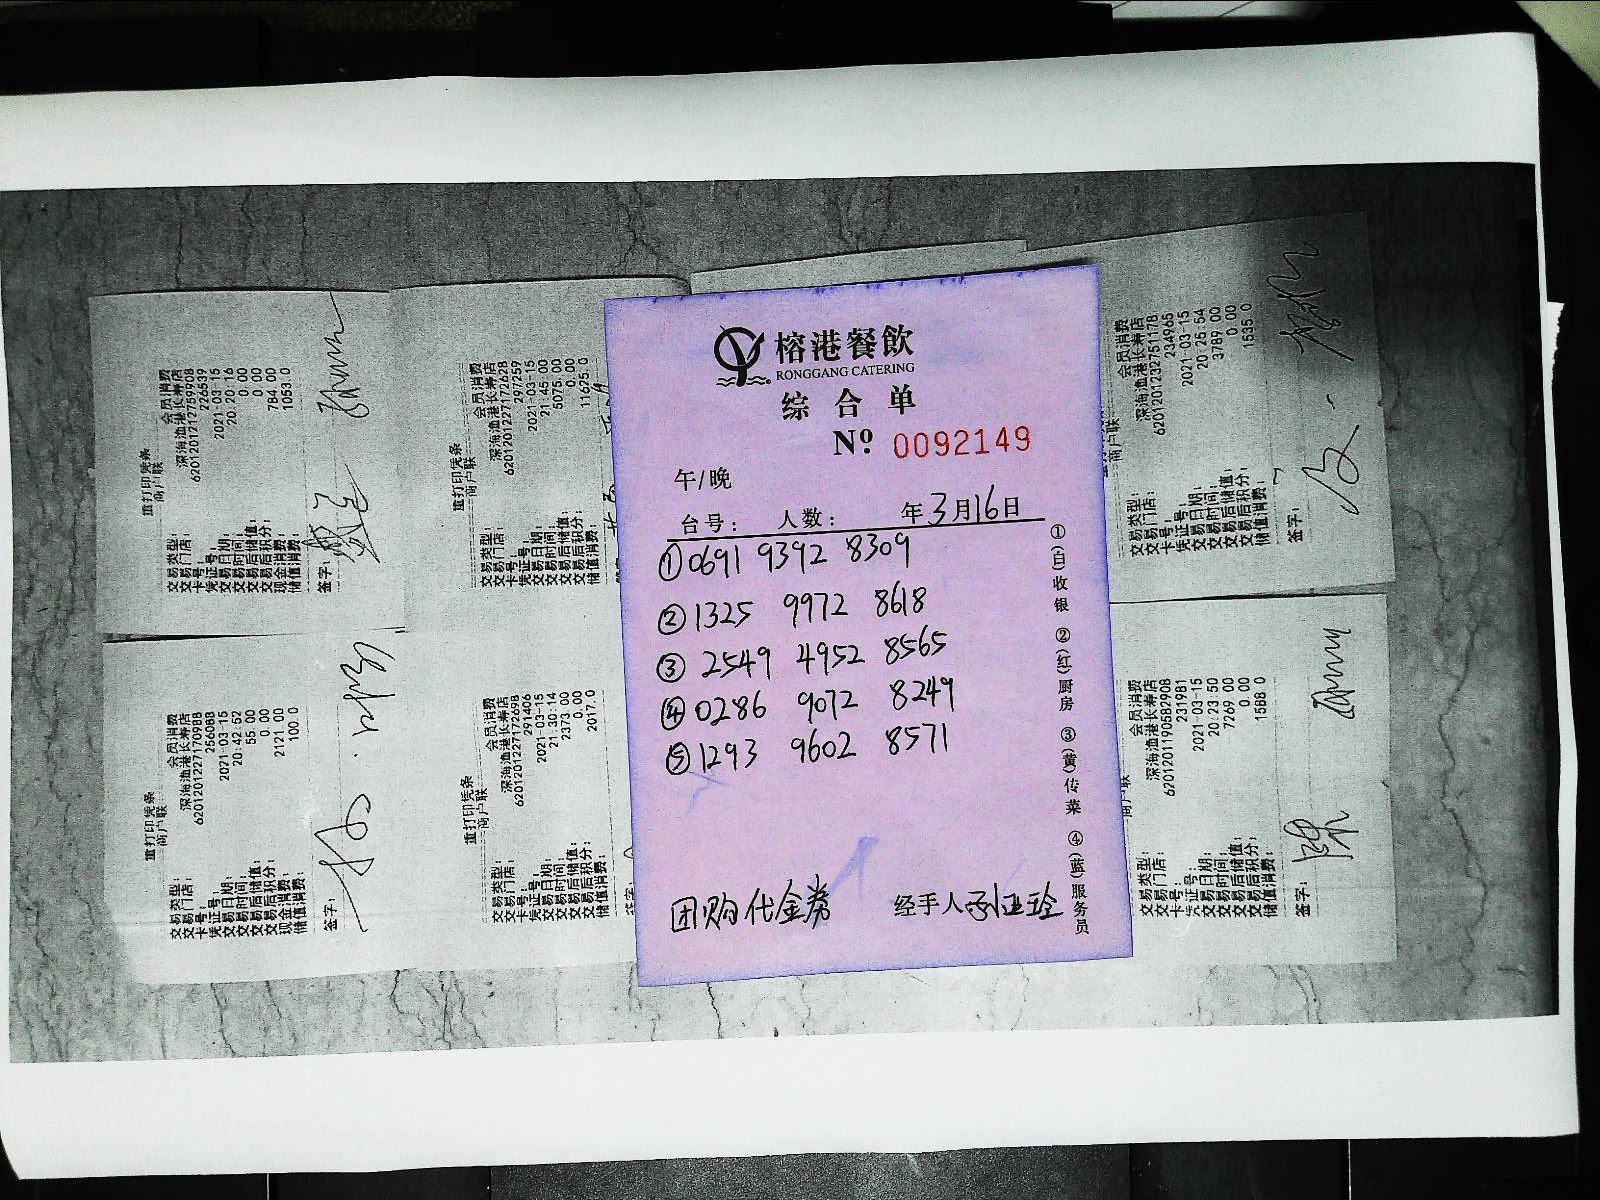 榕港餐飲
RONGGANG CATERING
综合单
Nº 0092149
午/晚
台号: 人数: 年3月16日
①0691 9392 8309
②1325 9972 8618
③ 2549 4952 8565
④0286 9072 8249
⑤1293 9602 8571
团购代金券 经手人
①(白)收银 ②(红)厨房 ③(黄)传菜 ④(蓝)服务员
重打印凭条
商户联
交易类型: 会员消费
交易门店: 深海渔港长寿店
卡号: 6201201217259908
凭证号: 226539
交易日期: 2021-03-15
交易时间: 20:20:16
交易后储值: 0.00
交易后积分: 0.00
现金消费: 784.00
储值消费: 1053.0
签字:
重打印凭条
商户联
交易类型: 会员消费
交易门店: 深海渔港长寿店
卡号: 6201201227170988
凭证号: 256088
交易日期: 2021-03-15
交易时间: 20:42:52
交易后储值: 55.00
交易后积分: 0.00
现金消费: 2121.00
储值消费: 100.0
签字:
重打印凭条
商户联
交易类型: 会员消费
交易门店: 深海渔港长寿店
卡号: 6201201227172628
凭证号: 297259
交易日期: 2021-03-15
交易时间: 21:45:00
交易后储值: 5075.00
交易后积分: 0.00
储值消费: 11625.0
重打印凭条
商户联
交易类型: 会员消费
交易门店: 深海渔港长寿店
卡号: 6201201227172698
凭证号: 291406
交易日期: 2021-03-15
交易时间: 21:30:14
交易后储值: 2373.00
交易后积分: 0.00
储值消费: 2017.0
签字:
商户联
交易类型: 会员消费
交易门店: 深海渔港长寿店
卡号: 6201201232751178
凭证号: 234965
交易日期: 2021-03-15
交易时间: 20:25:54
交易后储值: 3789.00
交易后积分: 0.00
储值消费: 1535.0
签字:
商户联
交易类型: 会员消费
交易门店: 深海渔港长寿店
卡号: 6201201190582908
凭证号: 231981
交易日期: 2021-03-15
交易时间: 20:23:50
交易后储值: 7269.00
交易后积分: 0.00
储值消费: 1588.0
签字: 陳